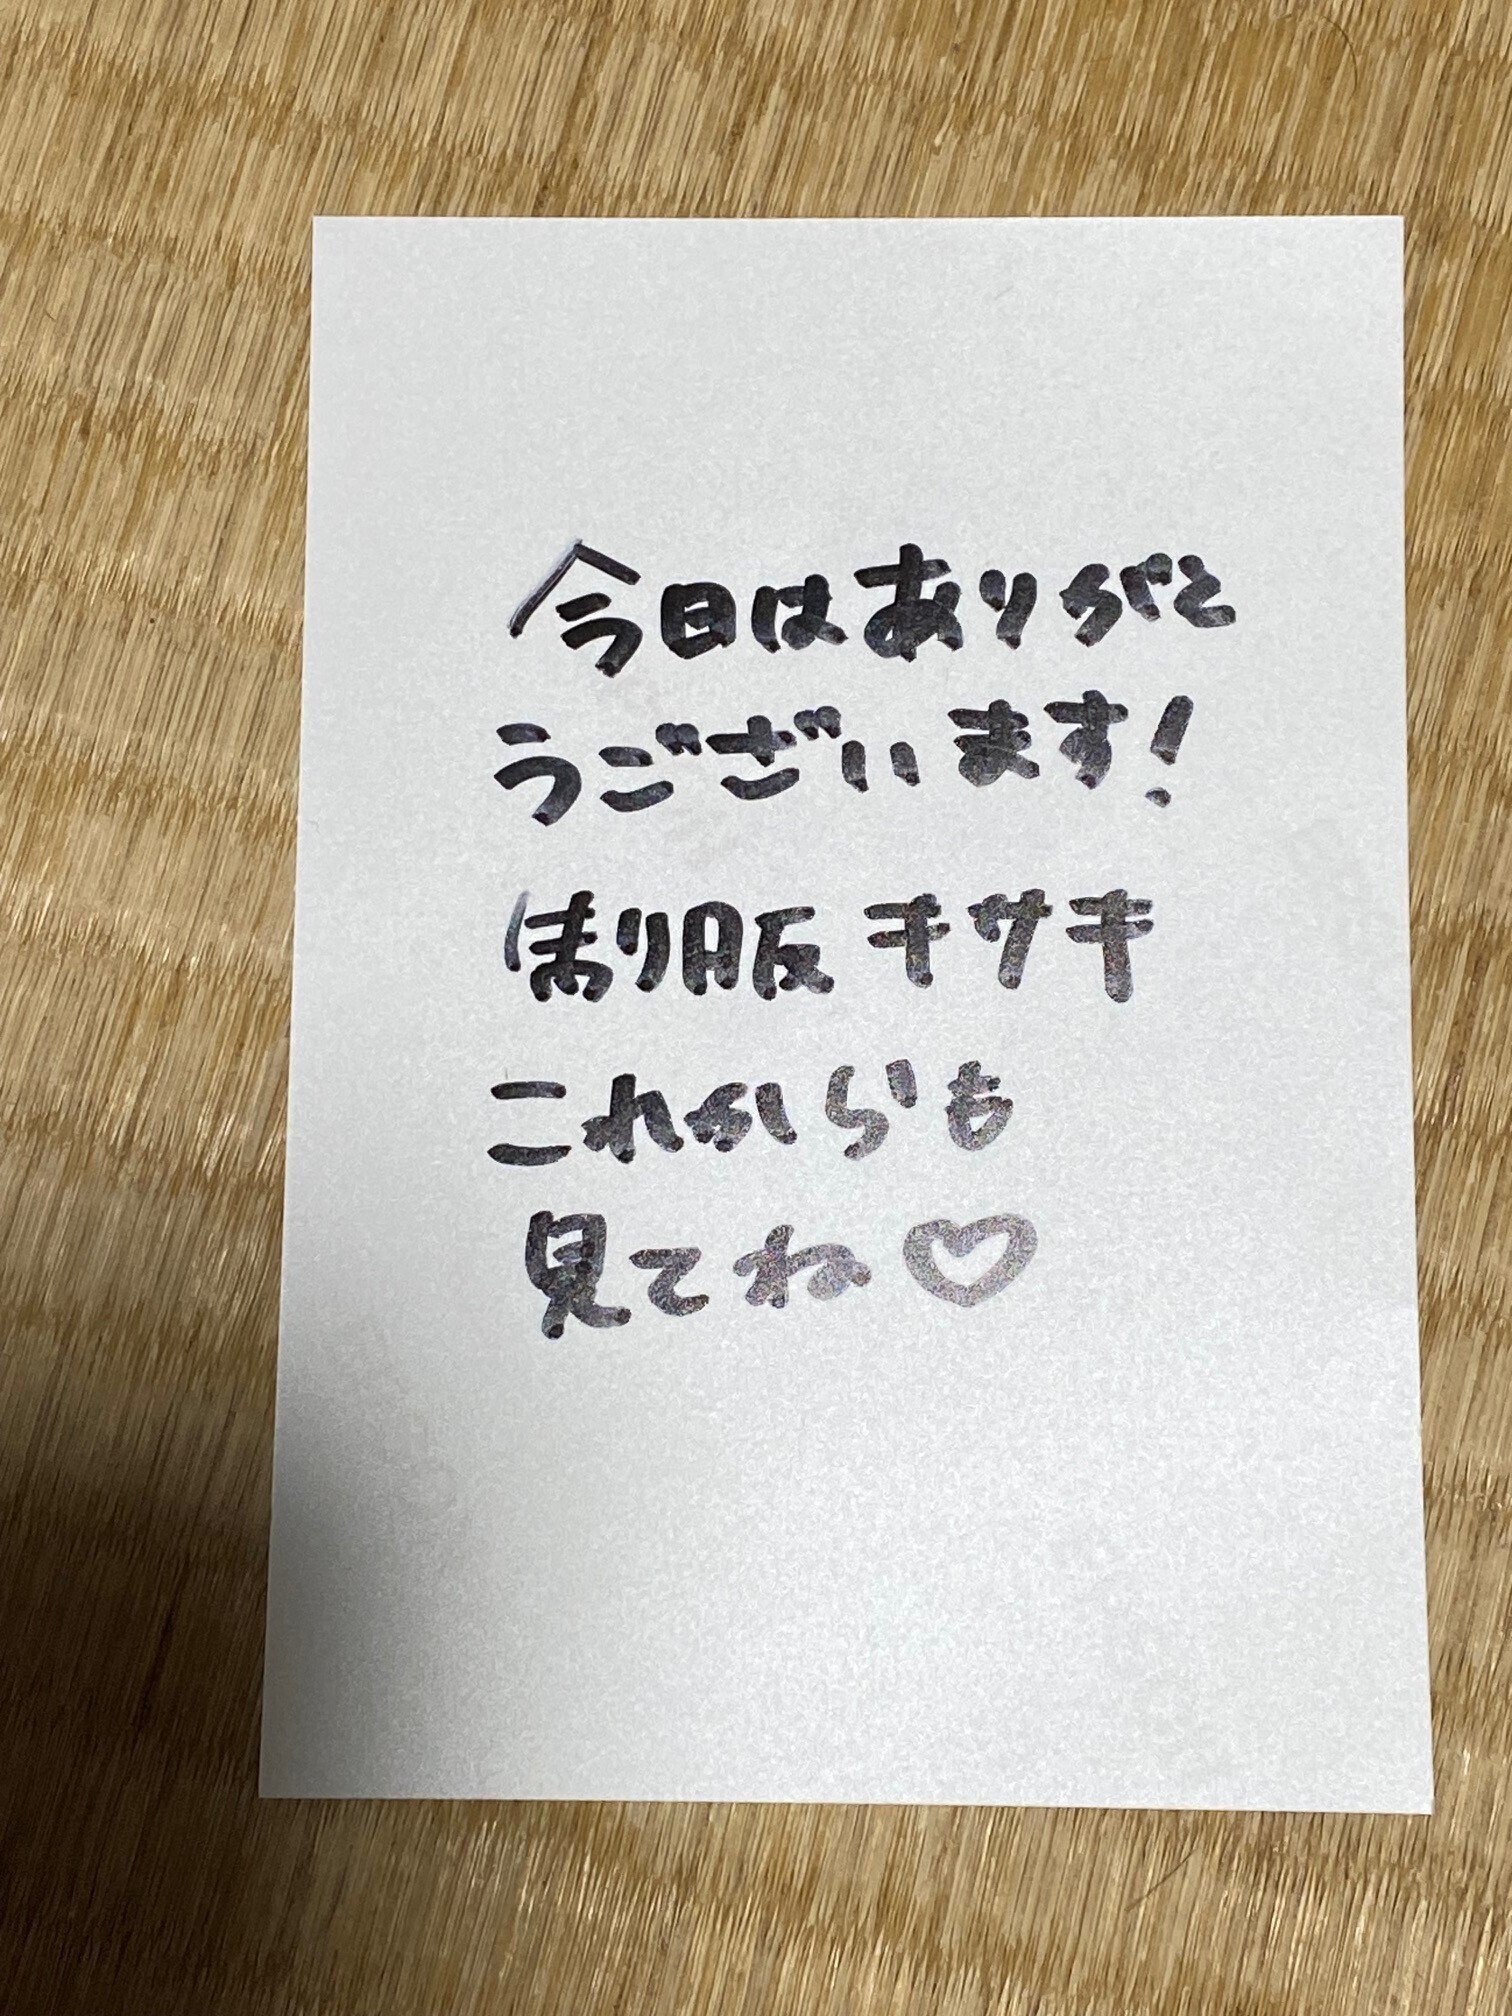 今日はありがと
うございます!
ほり服 キサキ
これからも
見てね♡